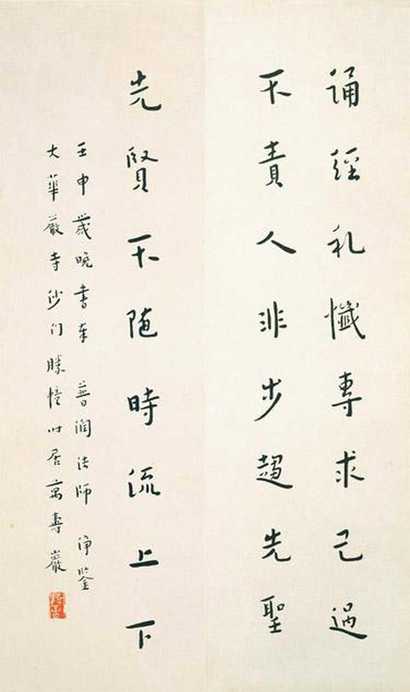 誦經礼懺專求己過
不責人非步趨先聖
先賢不随時流上下
壬申歲晚書奉 普潤法師 淨鉴
大華嚴寺沙门勝幢时居萬壽巖